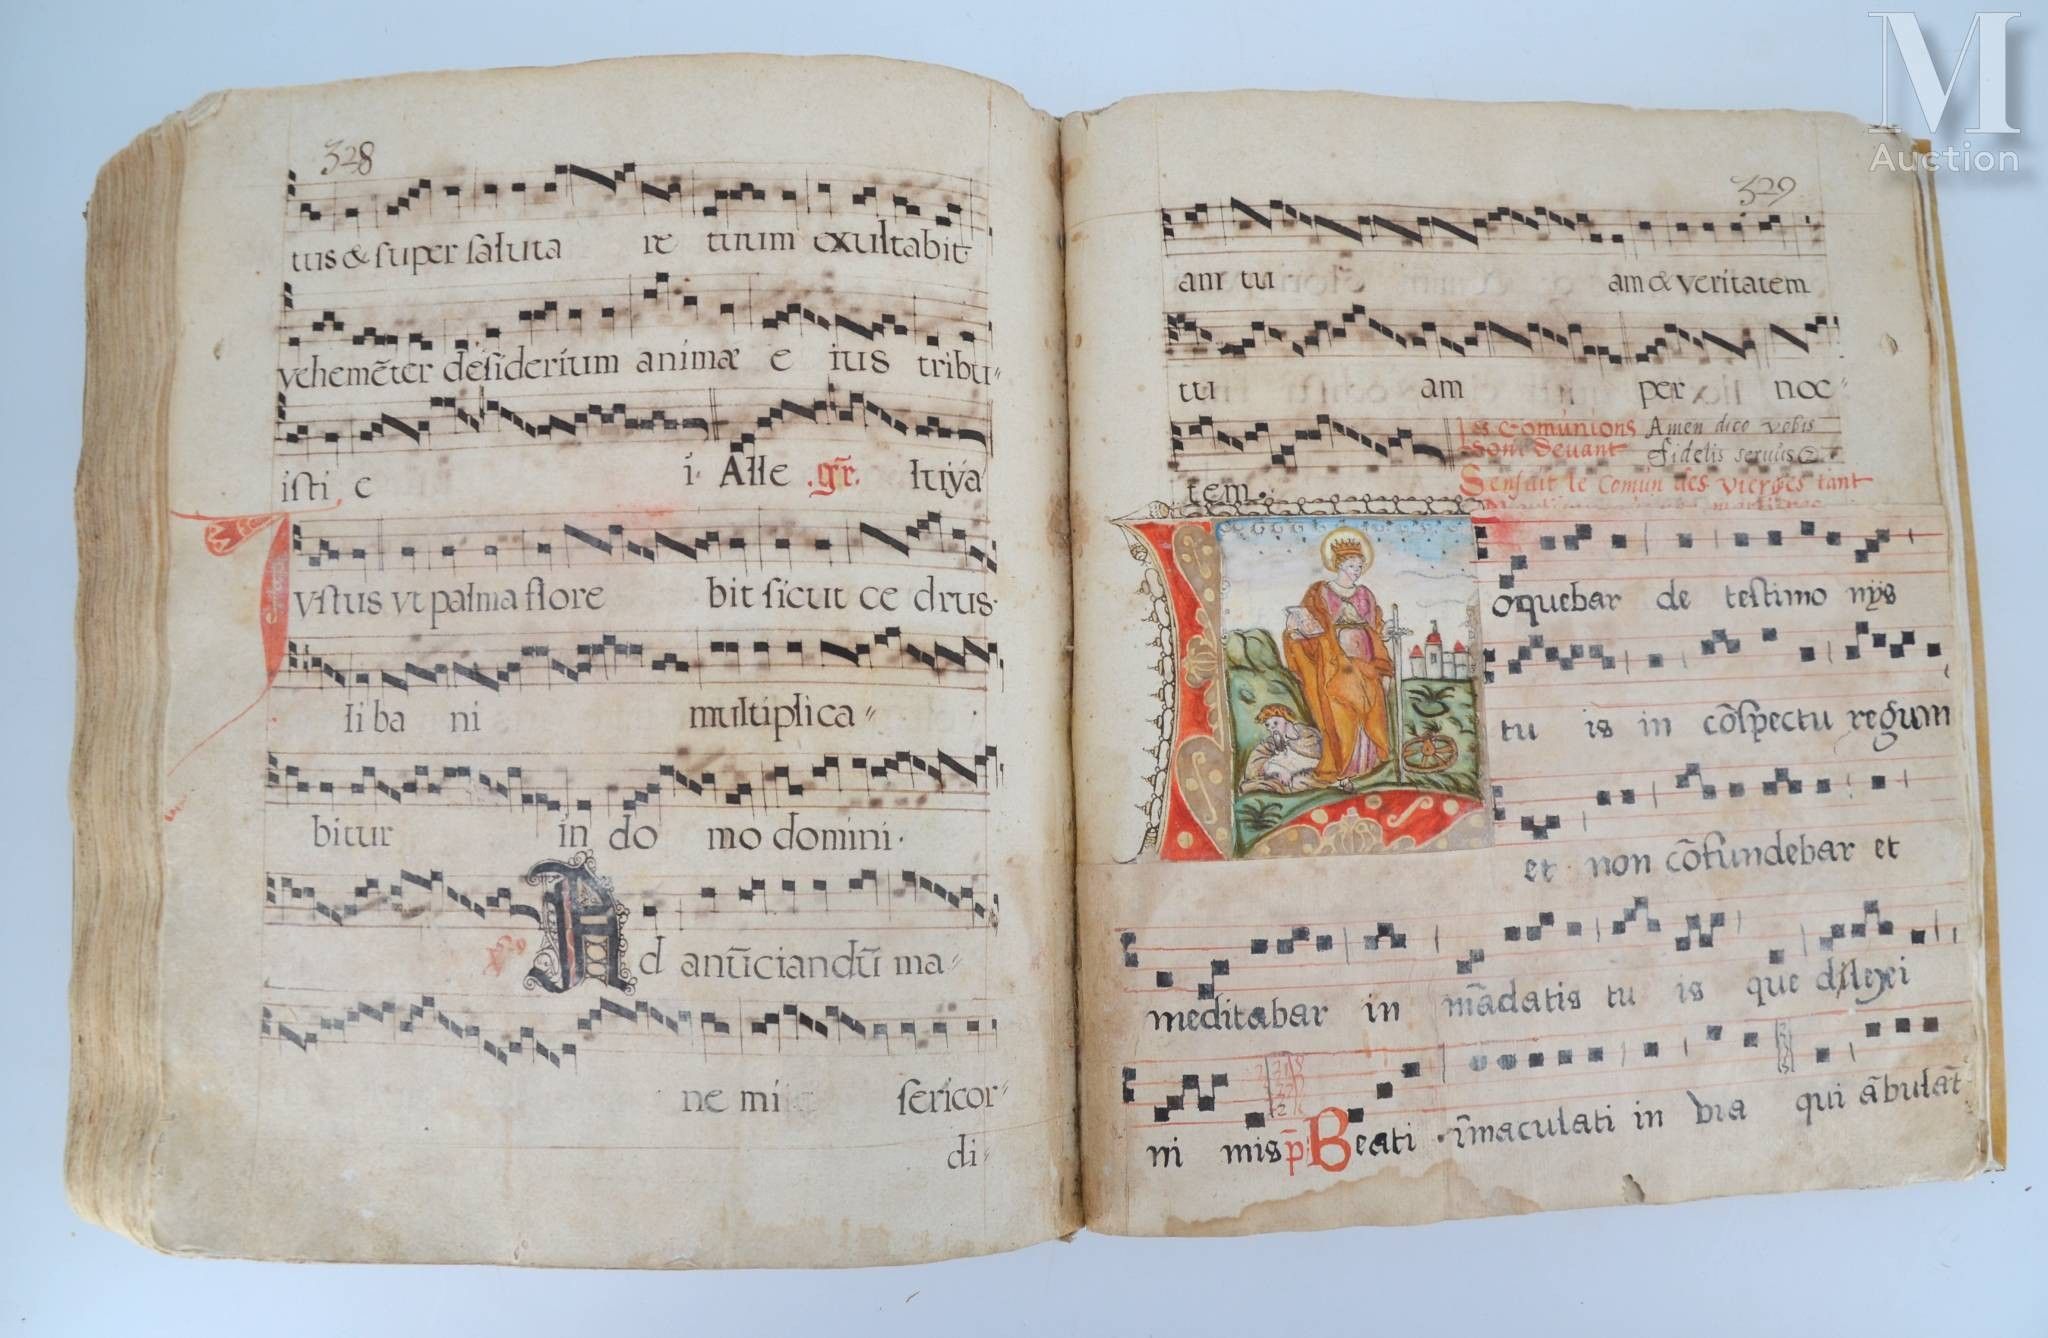 M
Auction
328
tus & ſuper ſaluta re tuum exultabit
vehemēter deſiderium animæ e ius tribu〃
iſti e i· Alle .gr̄. luiya
vſtus vt palma flore bit ſicut ce drus·
li ba ni multiplica〃
bitur in do mo domini·
Ad anūciandū ma〃
ne mi ſericor〃
di〃
329
am tu am & veritatem
tu am per noc〃
Les Comunions Amen dico vobis
sont devant fidelis servus
tem· Sensuit le Comun des vierges tant
Loquebar de teſtimo nijs
tu is in cōſpectu regum
et non cōfundebar et
meditabar in mādatis tu is que dilexi
ni mis p̄ Beati īmaculati in via qui ābulāt